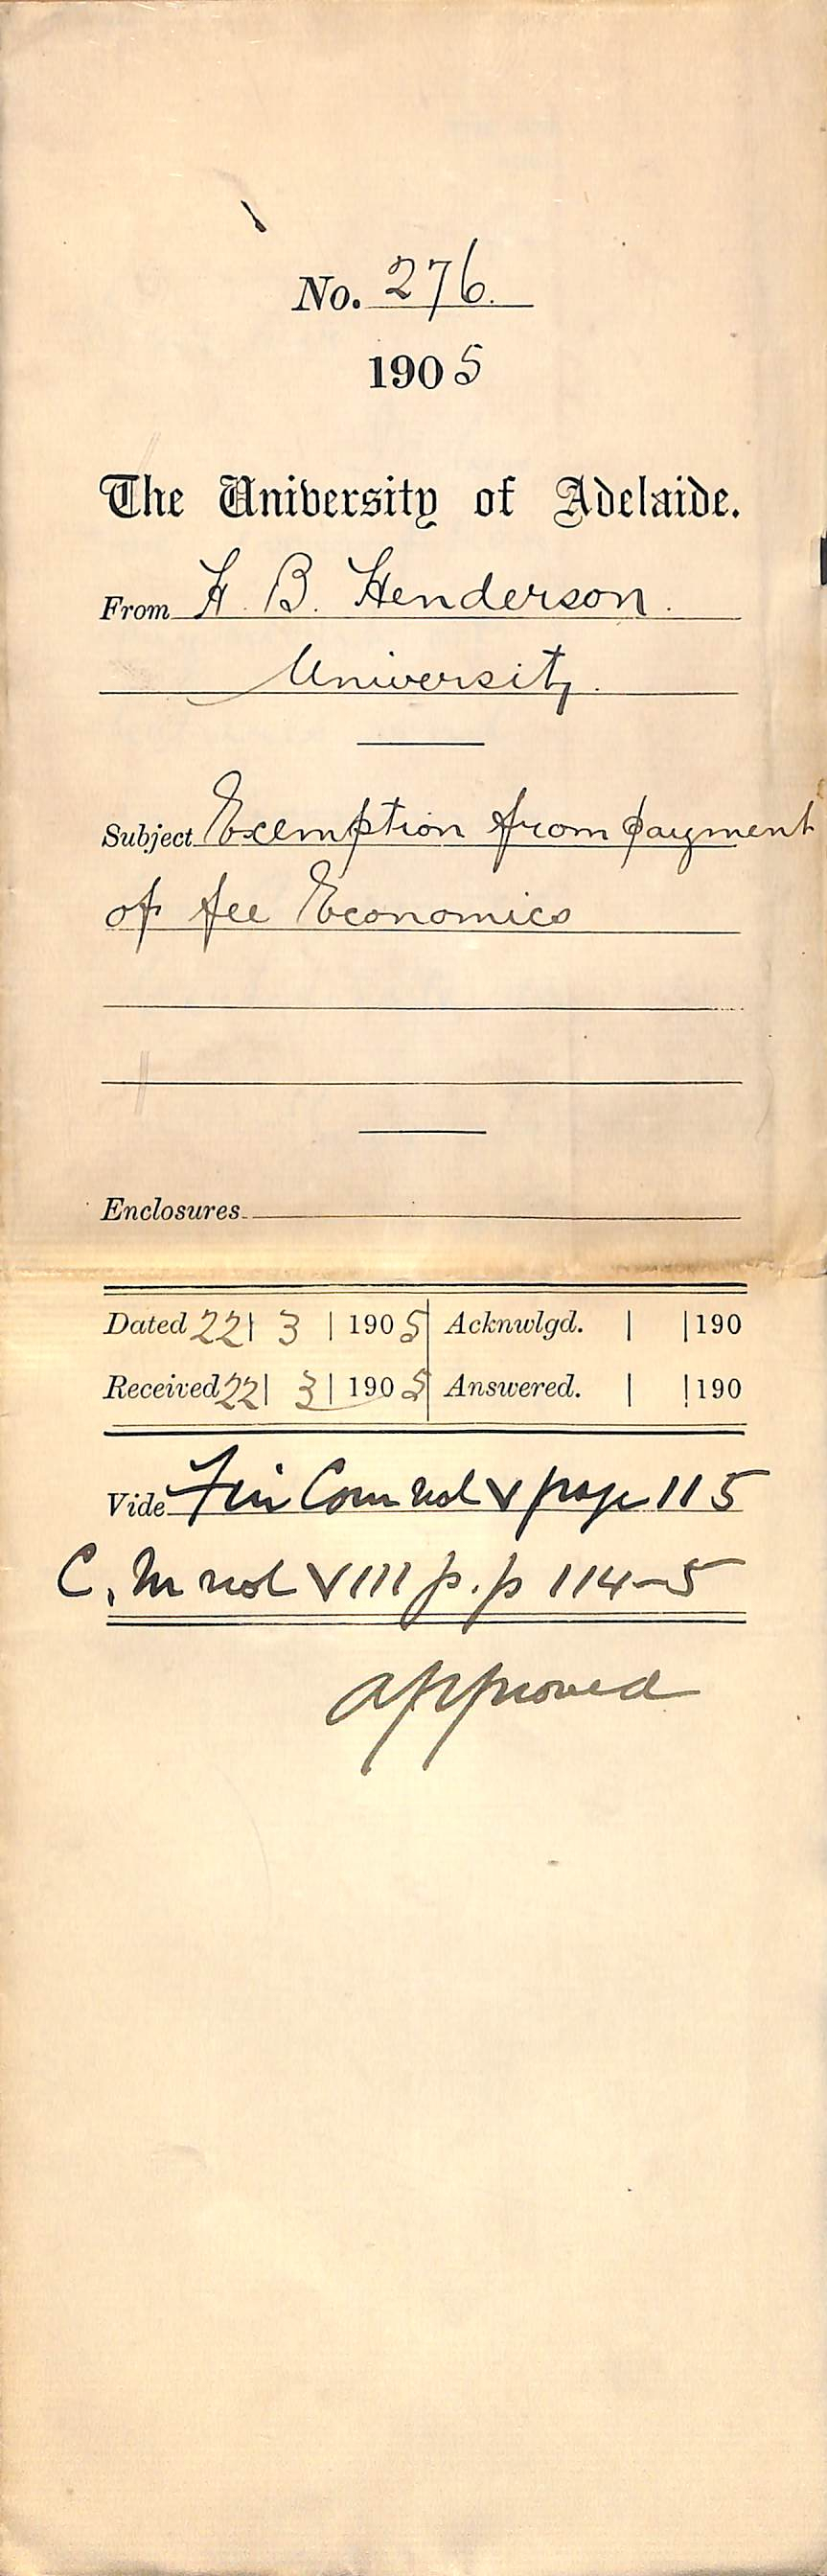 No. 276.
1905
The University of Adelaide.
From H. B. Henderson.
University.
Subject Exemption from payment
of fee Economics
Enclosures
Dated 22 | 3 | 1905 Acknwlgd. | | 190
Received 22 | 3 | 1905 Answered. | | 190
Vide Fin Com vol V page 115
C. M vol VIII p.p 114-5
approved